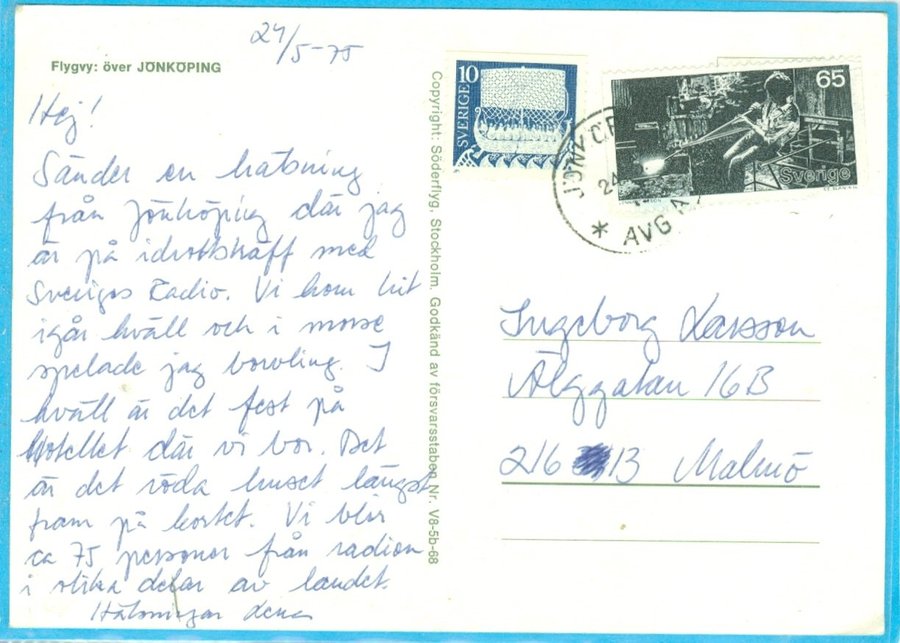 24/5-75
Flygvy: över JÖNKÖPING
Hej!
Sänder en hälsning
från Jönköping där jag
är på idrottsträff med
Sveriges Radio. Vi kom hit
igår kväll och i morse
spelade jag bowling. I
kväll är det fest på
hotellet där vi bor. Det
är det röda huset längst
fram på kortet. Vi blir
ca 75 personer från radion
i olika delar av landet.
Hälsningar
Copyright: Söderflyg, Stockholm. Godkänd av försvarsstaben Nr. V8-5b-68
SVERIGE 10
65
Sverige
24
* AVG
Ingeborg Larsson
Älggatan 16B
216 13 Malmö